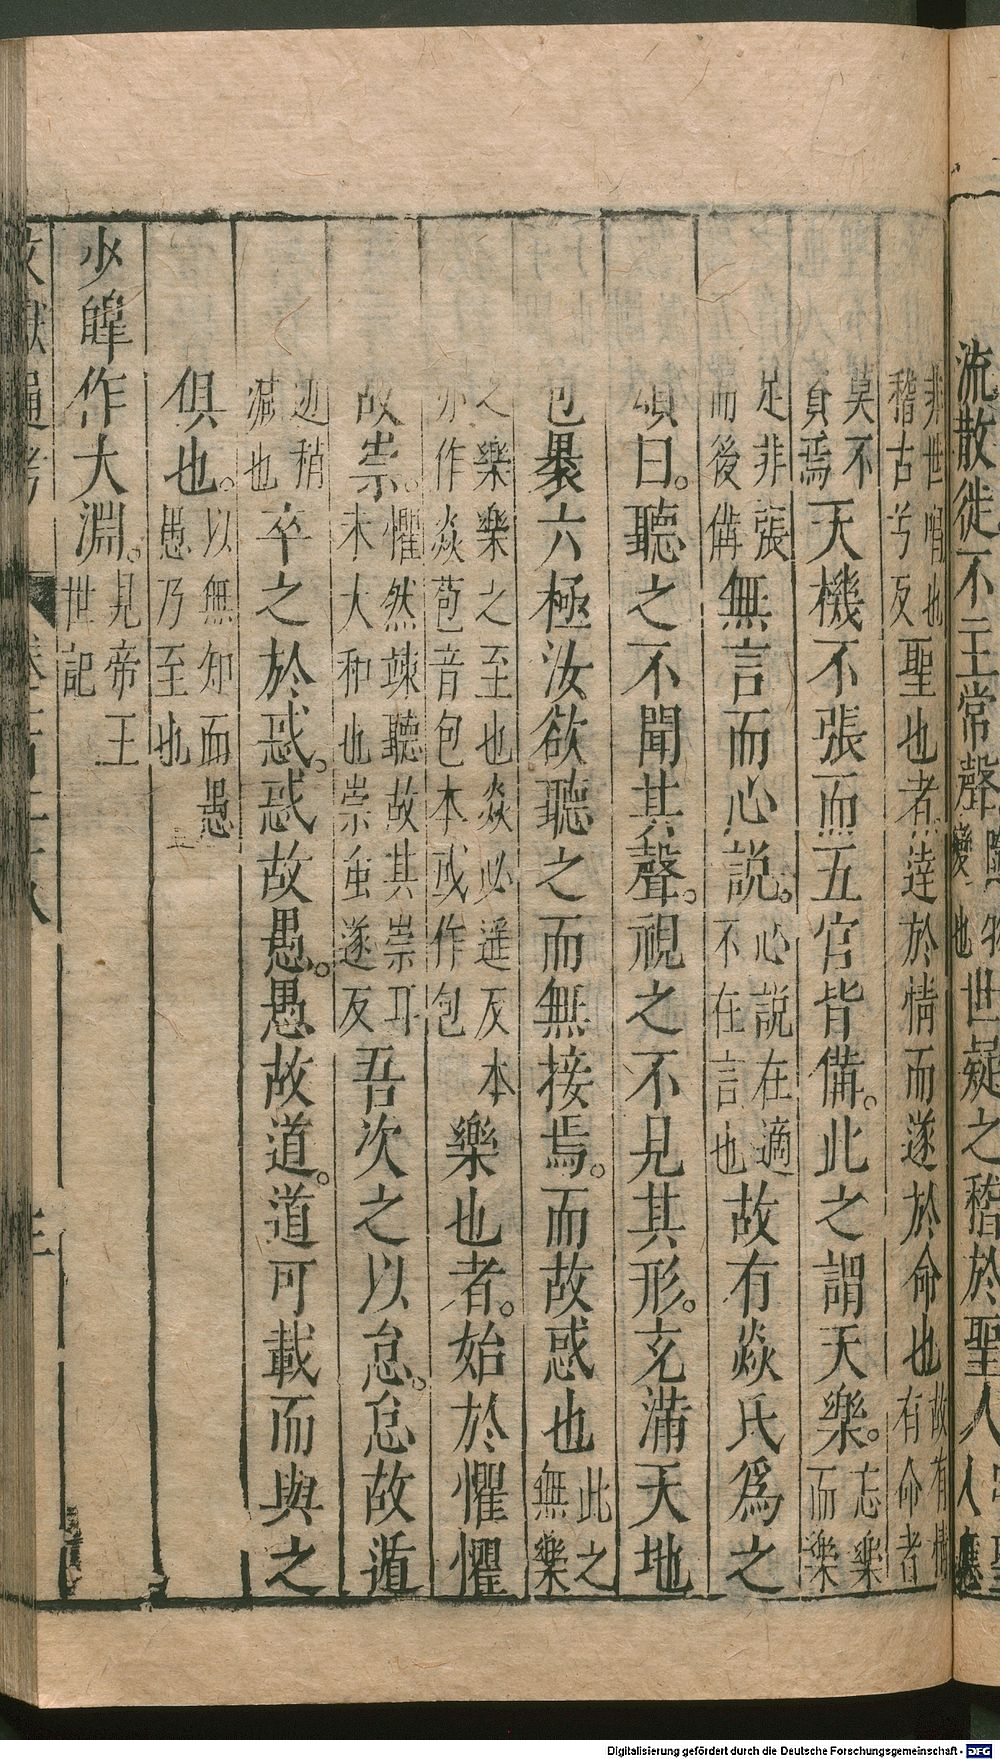 流散徙不主常聲
變也
世疑之稽於聖人
非世唱也
稽古兮反
聖也者達於情而遂於命也
故有情
有命者
莫不
責焉
天機不張而五官皆備。此之謂天樂。
忘樂
而樂
足非張
而後備
無言而心說。
心說在適
不在言也
故有焱氏為之
頌曰。聽之不聞其聲。視之不見其形。充滿天地
包褁六極汝欲聽之而無接焉。而故惑也
此之
無樂
之樂樂之至也焱必遥反本
亦作炎苞音包本或作包
樂也者。始於懼懼
故崇。
懼然竦聽故其崇耳
未大和也崇虽遂反
吾次之以怠。怠故遁
迹稍
滅也
卒之於惑。惑故愚。愚故道。道可載而與之
俱也。
以無知而愚
愚乃至也
少皥作大淵。
見帝王
世記
文獻通考
Digitalisierung gefördert durch die Deutsche Forschungsgemeinschaft - DFG